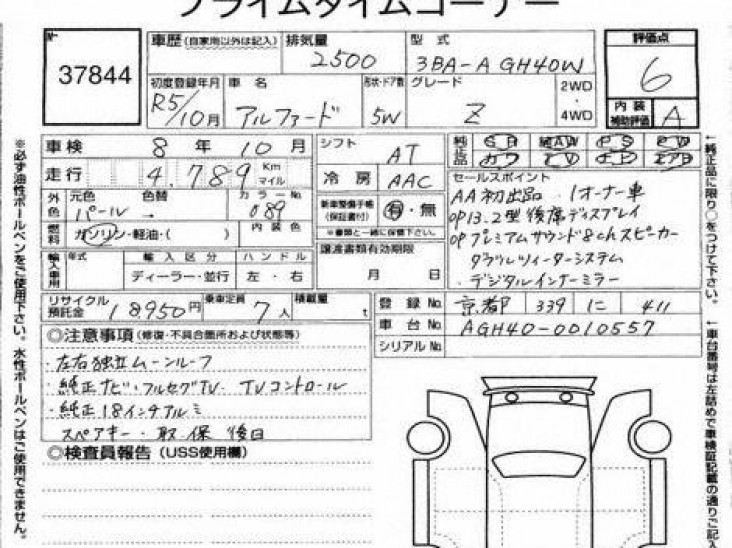 プライムタイムコーナー
No.
37844
車歴(自家用以外は記入)
排気量
2500
型式
3BA-AGH40W
評価点
6
初度登録年月
R5/10月
車名
アルファード
形状・ドア数
5W
グレード
Z
2WD
・
4WD
内装補助評価
A
車検
8年10月
シフト
AT
純正品
SR
AW
PS
PW
カワ
TV
ナビ
エアB
走行
4,789
Km
マイル
冷房
AAC
セールスポイント
AA初出品 1オーナー車
OP13.2型後席ディスプレイ
OPプレミアムサウンド8chスピーカー
ダブルツィーターシステム
・デジタルインナーミラー
外色
元色
パール
色替
カラーNo.
089
新車整備手帳(保証書付)
有・無
※書類と一緒に保管下さい。
燃料
ガソリン・軽油・( )
内装色
譲渡書類有効期限
月 日
輸入車用
年式
輸入区分
ディーラー・並行
ハンドル
左・右
リサイクル預託金
18950円
乗車定員
7人
積載量
t
登録No.
京都 339 に 411
車台No.
AGH40-0010557
シリアルNo.
◎注意事項(修復・不具合箇所および状態等)
・左右独立ムーンルーフ
・純正ナビ・フルセグTV・TVコントロール
・純正18インチアルミ
スペアキー・取・保 後日
◎検査員報告(USS使用欄)
※必ず油性ボールペンをご使用下さい。水性ボールペンはご使用できません。
←純正品に限り○をつけて下さい。
←車台番号は左詰めで車検証記載の通りご記入